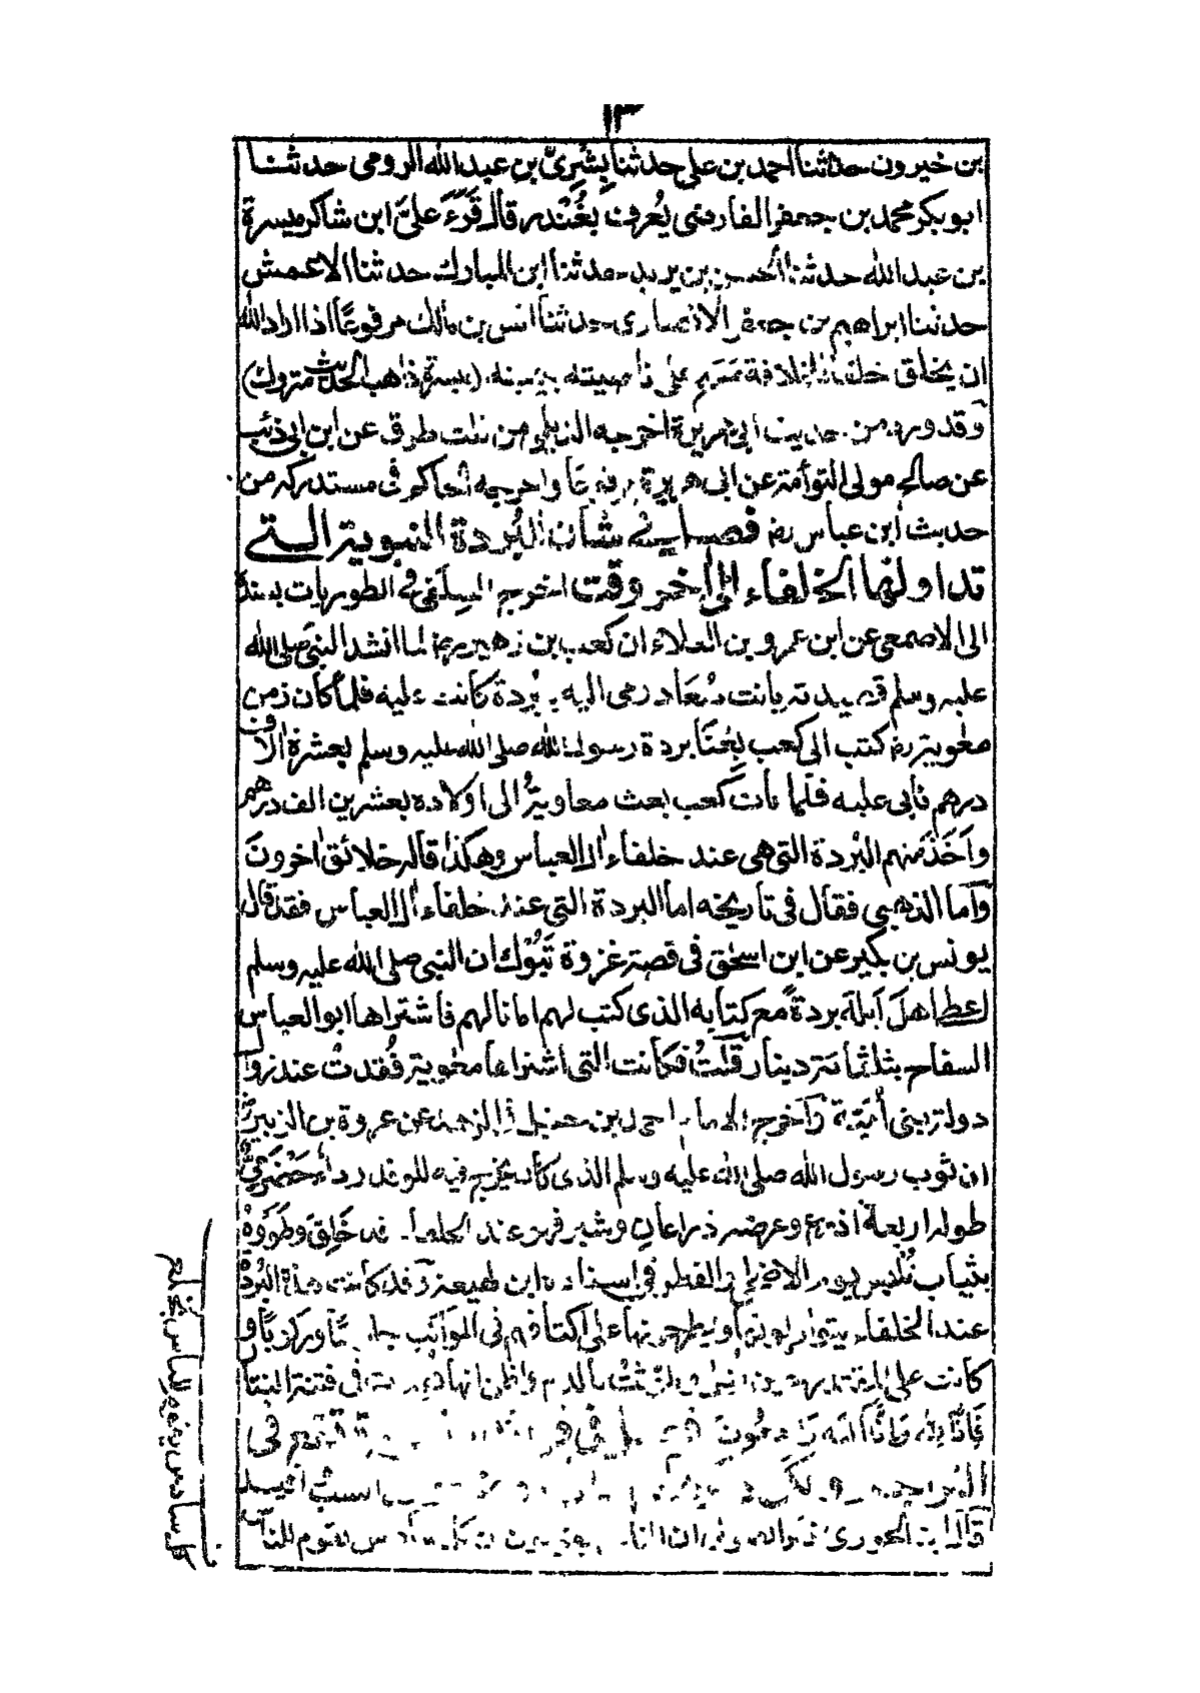 ١٣
بن خيرون حدثنا احمد بن على حدثنا بُشرىٰ بن عبد الله الرومى حدثنا
ابو بكر محمد بن جعفر الفارضى يُعرف بغُنْدر قال قُرِءَ علىَّ ابن شاكر ميسرة
بن عبد الله حدثنا الحسن بن يزيد حدثنا ابن المبارك حدثنا الاعمش
حدثنا ابراهيم بن جعفر الانصارى حدثنا انس بن مالك مرفوعًا اذا اراد الله
ان يخلق خلقا للخلافة مَسَح على ناصيته بيمينه (ميسرة ذاهب الحديث متروك)
وقد ورد من حديث ابى هريرة اخرجه الديلمى من ثلث طرق عن ابن ابى ذئب
عن صالح مولى التوأمة عن ابى هريرة مرفوعًا واخرجه الحاكم فى مستدركه من
حديث ابن عباس رضـ فصل فى شان البُردة النبوية التى
تداولها الخلفاء الى اٰخر وقت اخرج السِلَفى فى الطوريات بسنده
الى الاصمعى عن ابن عمرو بن العلاء ان كعب بن زهير رضـ لما انشد النبى صلى الله
عليه وسلم قصيدته بانت سُعَاد رمى اليه بِبُردة كانت عليه فلما كان زمن
معٰوية رضـ كتب الى كعب بِعْنَا بردة رسول الله صلى الله عليه وسلم بعشرة اٰلاف
درهم فابى عليه فلمّا مات كعب بعث معاوية الى اولاده بعشرين الف درهم
واَخَذَ منهم البُردة التى هى عند خلفاء اٰل العباس وهكذا قاله خلائق اٰخرونَ
وامّا الذهبى فقال فى تاريخه اما البردة التى عند خلفاء اٰل العباس فقد قال
يونس بن بكير عن ابن اسحٰق فى قصة غزوة تَبُوْك ان النبى صلى الله عليه وسلم
اعطا اهلَ اَيلة بردةً مع كتابه الذى كتب لهم امانا لهم فاشتراها ابو العباس
السفاح بثلثمائة دينار قُلتُ فكانت التى اشتراها معٰوية فُقدتْ عند زوال
دولة بنى اُميّة واخرج الامام احمد بن حنبل فى الزهد عن عروة بن الزبير رضـ
ان ثوب رسول الله صلى الله عليه وسلم الذى كان يخرج فيه للوفد رداء حَضْرَمِىٌّ
طوله اربعة اذرع وعرضه ذراعان وشبر فهو عند الخلفاء قد خَلِقَ وطَوَوْهُ
بثياب تُلْبس يوم الاضحىٰ والفطر فى اسناده ابن لهيعة وقد كانت هذه البُرْدة
عند الخلفاء يتوارثونها ويطرحونها على اكتافهم فى المواكب جلوسًا وركوبًا و
كانت على المقتدر حين قُتِل وتلوّثتْ بالدم واظن انها فُقدت فى فتنة التتار
فَاِنَّا لِلّٰه وَاِنَّا اِلَيْه رَاجِعُونَ
قال ابن الجوزى يقوم للناس
كل سادس يقوم للناس يُخلع